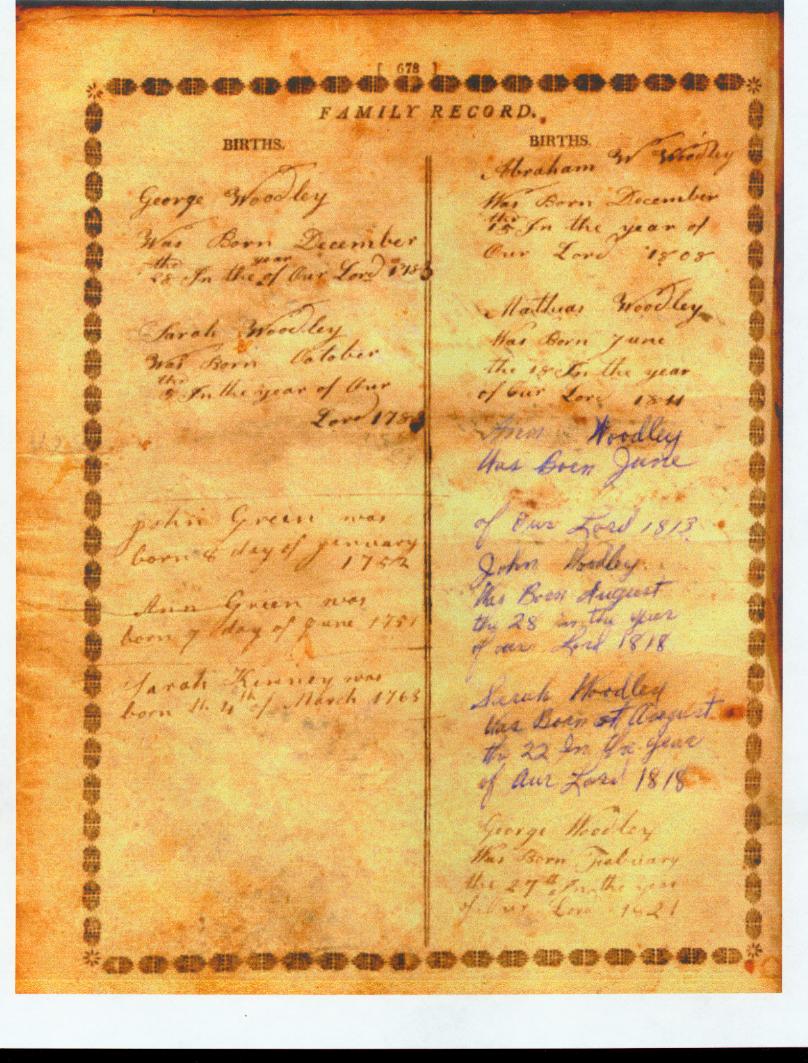 [ 678 ]
FAMILY RECORD.
BIRTHS.
George Woodley
Was Born December
the year
28 In the of Our Lord
Sarah Woodley
Was Born October
the
In the year of Our
Lord
John Green was
born 8 day of January
1752
Ann Green was
born 7 day of June 1751
Sarah Kenney was
born the 4th of March 1763
BIRTHS.
Abraham W Woodley
Was Born December
the
15 In the year of
Our Lord 1808
Mathias Woodley
Was Born June
the 18 In the year
of Our Lord 1811
Ann Woodley
Was Born June
of Our Lord 1813
John Woodley
Was Born August
the 28 in the year
of our Lord 1818
Sarah Woodley
Was Born at August
the 22 In the year
of Our Lord 1818
George Woodley
Was Born February
the 27th In the year
of Our Lord 1821